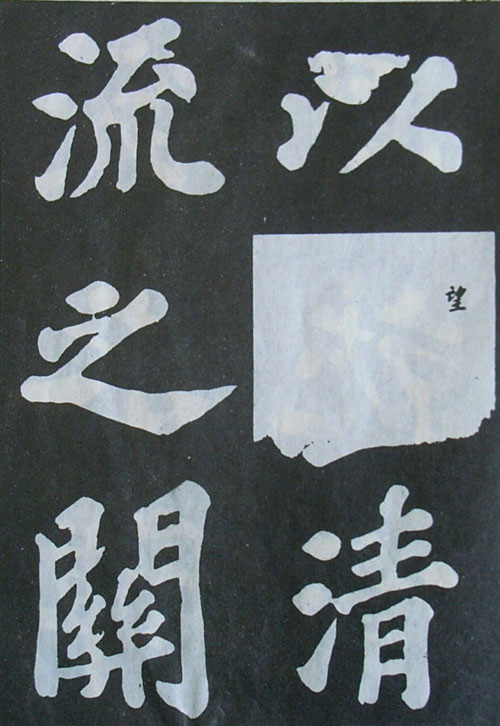 以望清
流之關